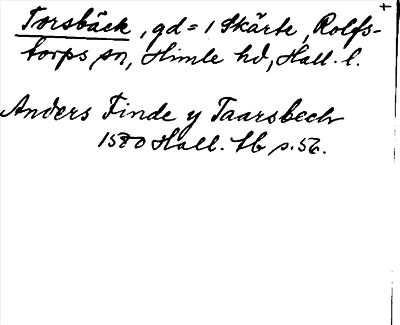 Torsbäck, gd = 1 Skärte, Rolfs-
torps sn, Himle hd, Hall. l.
Anders Finde y Taarsbech
1580 Hall. tb s. 56.